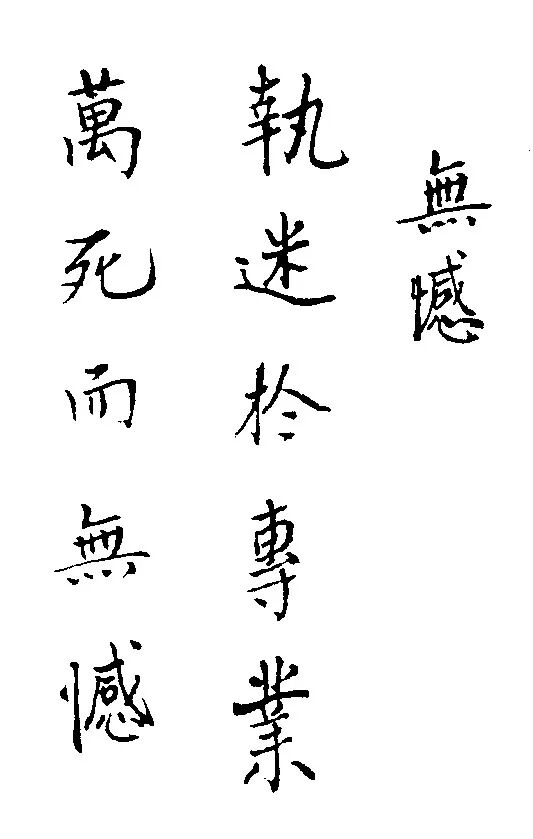 無憾
執迷於專業
萬死而無憾